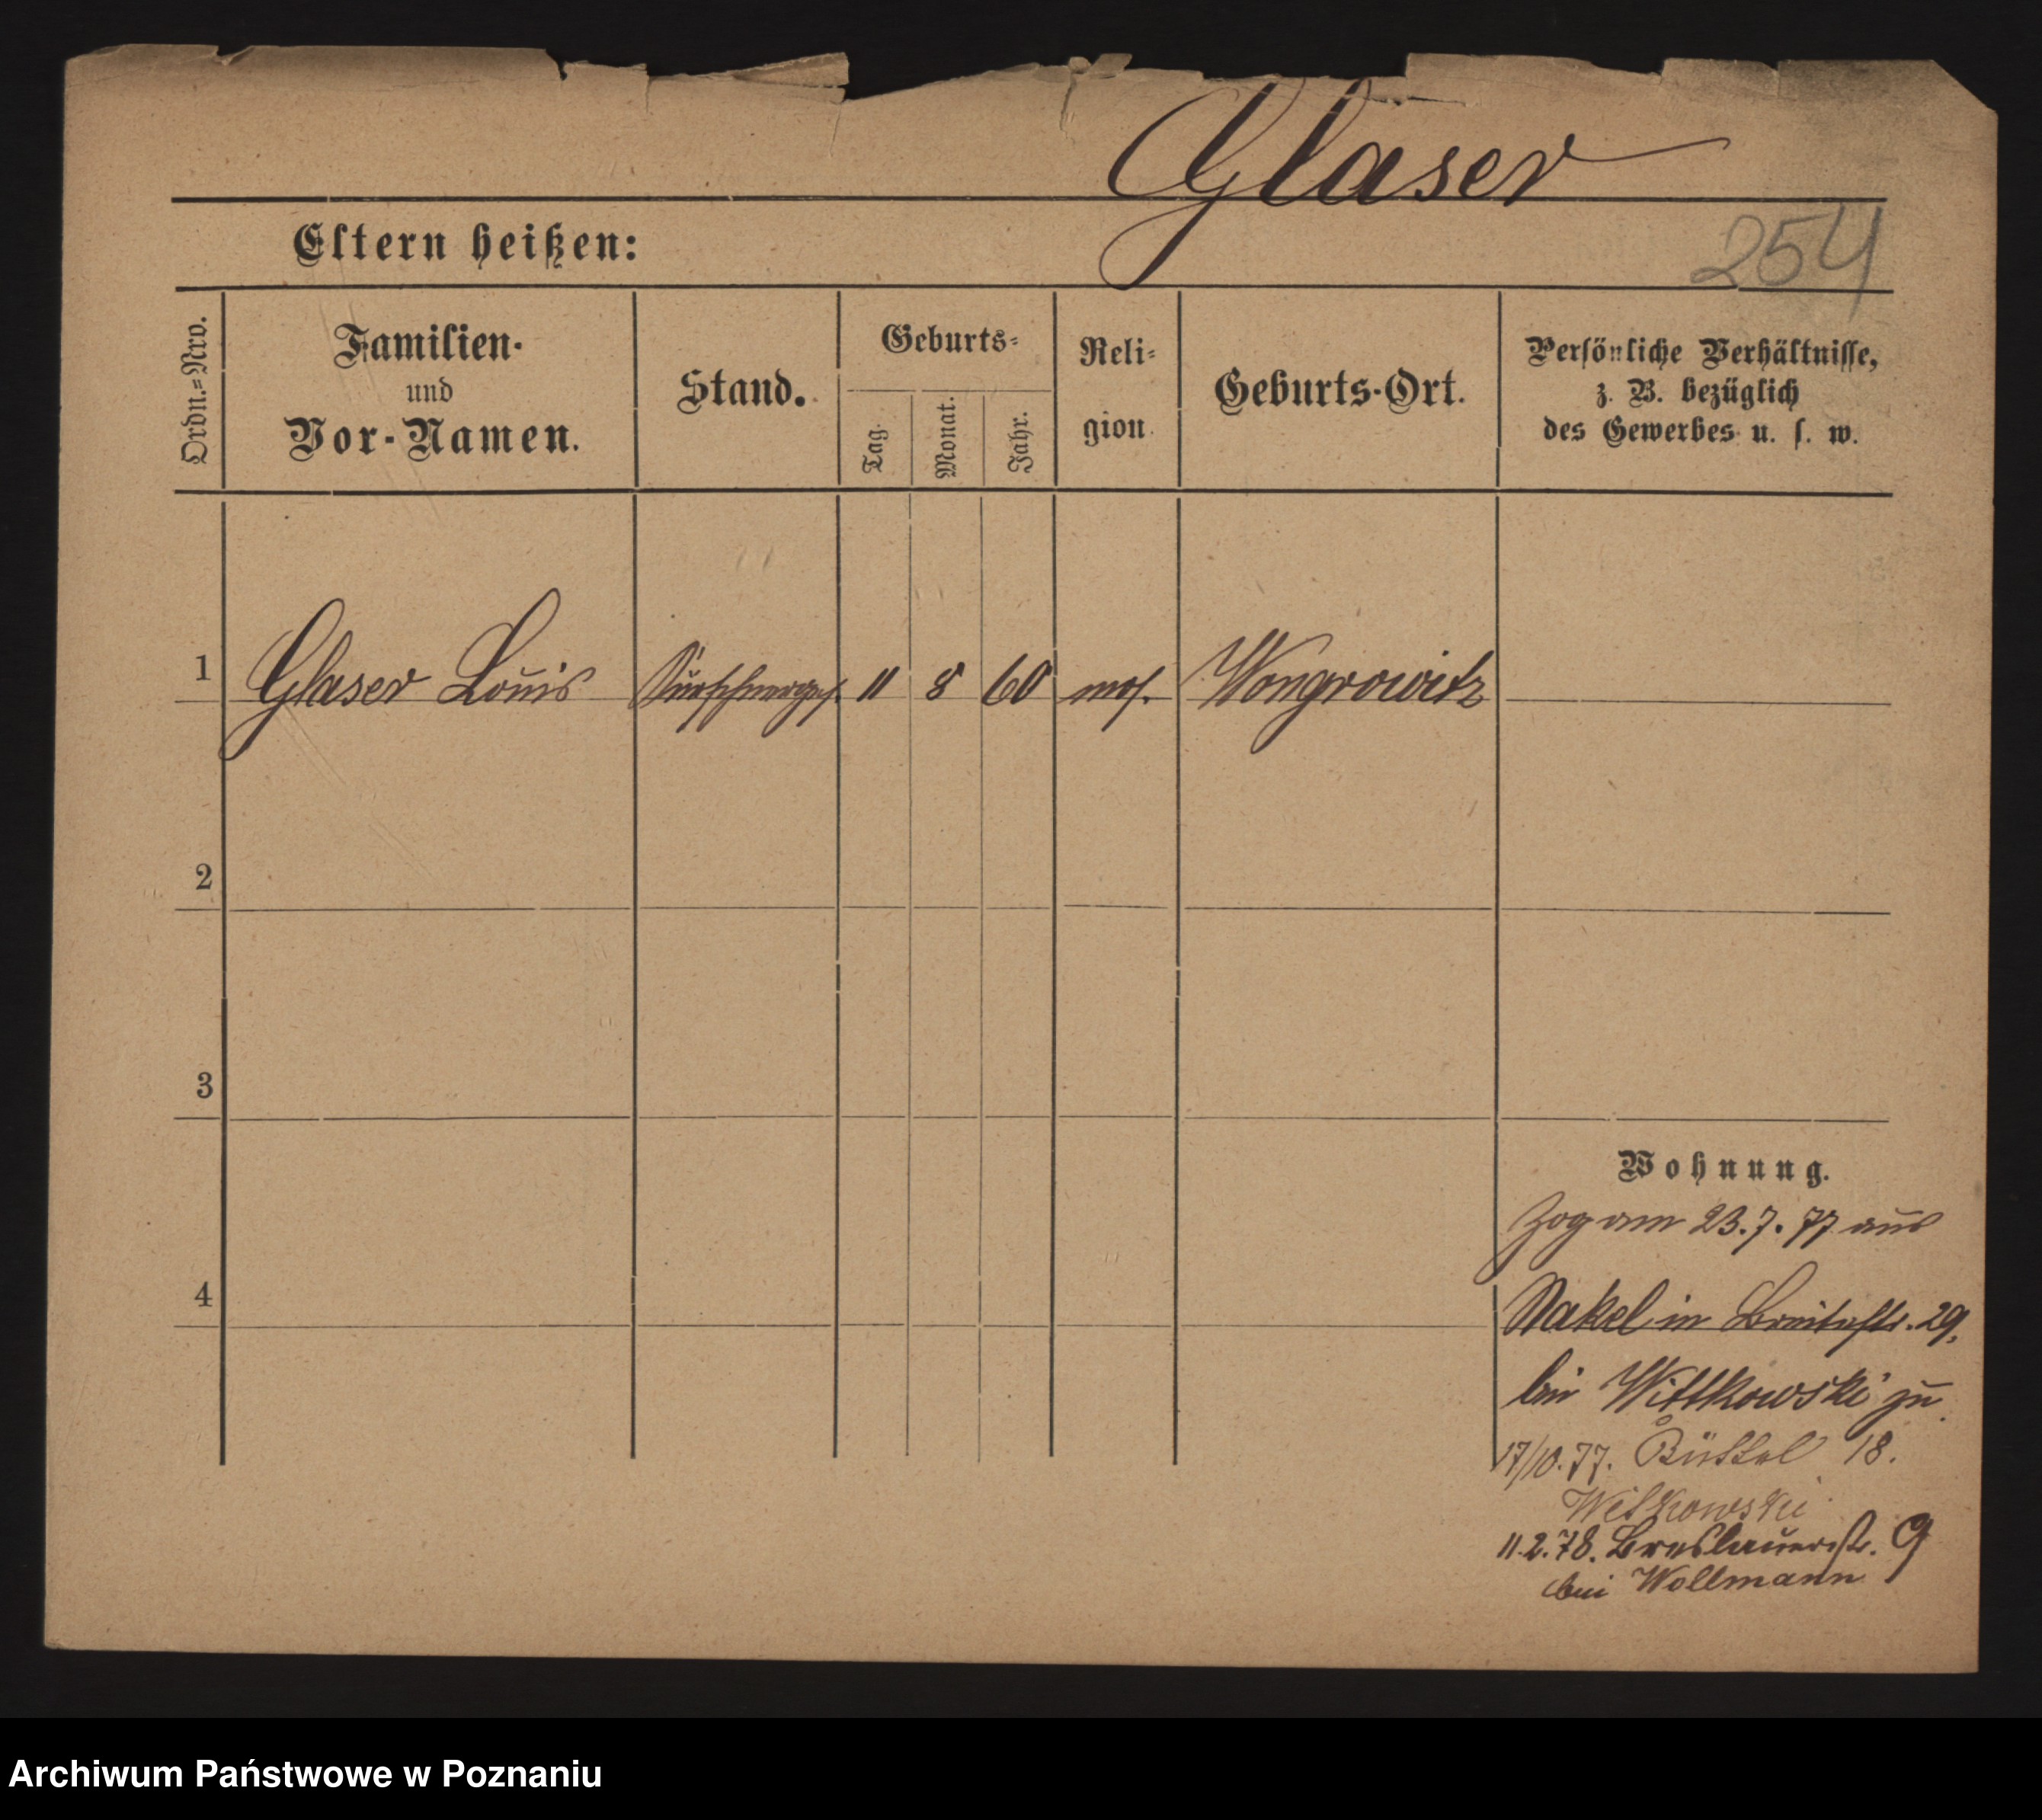 Glaser
Eltern heißen:
254
Ordn.=Nro.
Familien-
und
Vor-Namen.
Stand.
Geburts=
Tag.
Monat.
Jahr.
Reli=
gion
Geburts-Ort.
Persönliche Verhältnisse,
z. B. bezüglich
des Gewerbes u. s. w.
1 Glaser Louis Kürschnerges. 11 8 60 mos. Wongrowitz
2
3
Wohnung.
Zog am 23.7.77 aus
4
Nakel in Breitestr. 29,
bei Wittkowski zu
17/10.77. Büttel 18.
Witkowski
11.2.78. Breslauerstr. 9
bei Wollmann
Archiwum Państwowe w Poznaniu